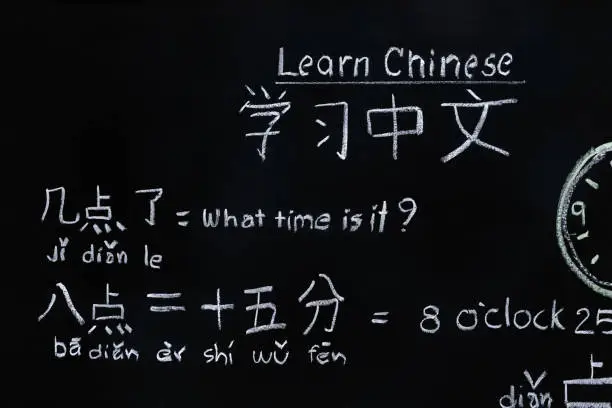 Learn Chinese
学习中文
几点了 = What time is it?
jǐ diǎn le
9
八点二十五分 = 8 o'clock 25
bā diǎn èr shí wǔ fēn
diǎn